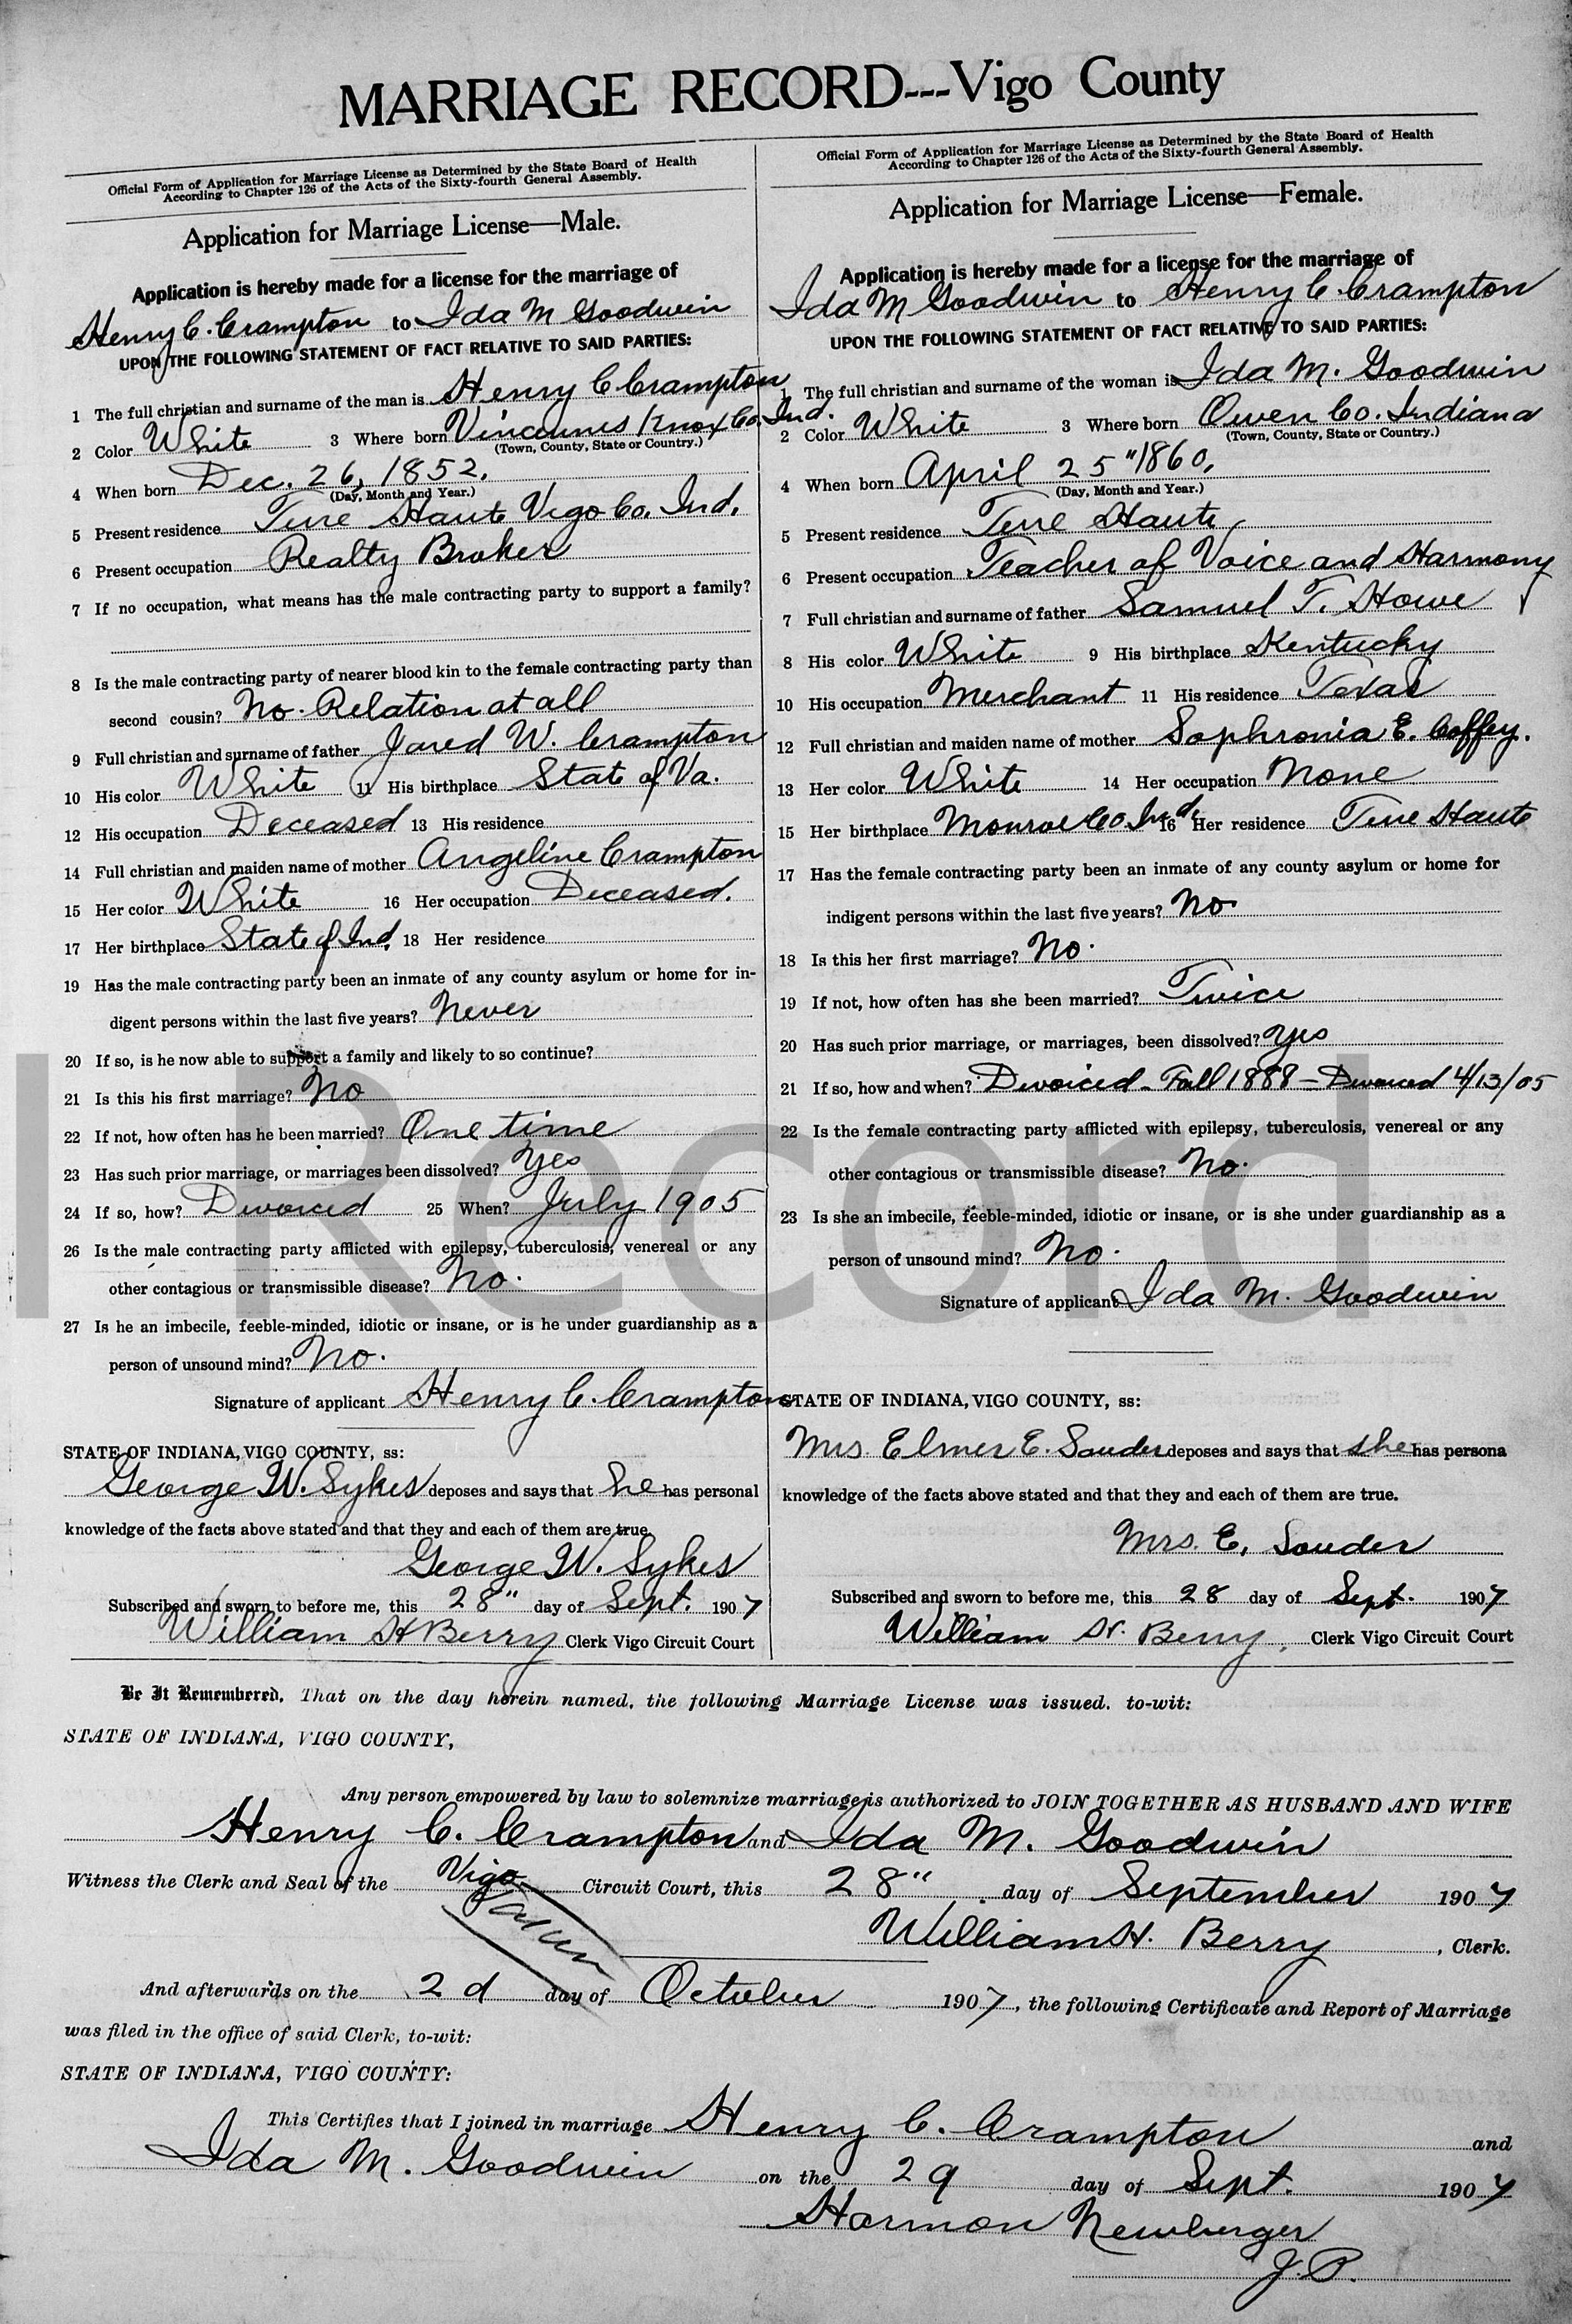 MARRIAGE RECORD---Vigo County
Official Form of Application for Marriage License as Determined by the State Board of Health
According to Chapter 126 of the Acts of the Sixty-fourth General Assembly.
Application for Marriage License—Male.
Application is hereby made for a license for the marriage of
Henry C. Crampton to Ida M Goodwin
UPON THE FOLLOWING STATEMENT OF FACT RELATIVE TO SAID PARTIES:
1 The full christian and surname of the man is Henry C Crampton
2 Color White 3 Where born Vincennes Knox Co. Ind.
(Town, County, State or Country.)
4 When born Dec. 26, 1852.
(Day, Month and Year.)
5 Present residence Terre Haute Vigo Co. Ind.
6 Present occupation Realty Broker
7 If no occupation, what means has the male contracting party to support a family?
8 Is the male contracting party of nearer blood kin to the female contracting party than
second cousin? No. Relation at all
9 Full christian and surname of father Jared W. Crampton
10 His color White 11 His birthplace State of Va.
12 His occupation Deceased 13 His residence
14 Full christian and maiden name of mother Angeline Crampton
15 Her color White 16 Her occupation Deceased.
17 Her birthplace State of Ind. 18 Her residence
19 Has the male contracting party been an inmate of any county asylum or home for in-
digent persons within the last five years? Never
20 If so, is he now able to support a family and likely to so continue?
21 Is this his first marriage? No
22 If not, how often has he been married? One time
23 Has such prior marriage, or marriages been dissolved? Yes
24 If so, how? Divorced 25 When? July 1905
26 Is the male contracting party afflicted with epilepsy, tuberculosis, venereal or any
other contagious or transmissible disease? No.
27 Is he an imbecile, feeble-minded, idiotic or insane, or is he under guardianship as a
person of unsound mind? No.
Signature of applicant Henry C. Crampton
STATE OF INDIANA, VIGO COUNTY, ss:
George W. Sykes deposes and says that he has personal
knowledge of the facts above stated and that they and each of them are true.
George W. Sykes
Subscribed and sworn to before me, this 28" day of Sept. 1907
William H Berry Clerk Vigo Circuit Court
Official Form of Application for Marriage License as Determined by the State Board of Health
According to Chapter 126 of the Acts of the Sixty-fourth General Assembly.
Application for Marriage License—Female.
Application is hereby made for a license for the marriage of
Ida M Goodwin to Henry C. Crampton
UPON THE FOLLOWING STATEMENT OF FACT RELATIVE TO SAID PARTIES:
1 The full christian and surname of the woman is Ida M. Goodwin
2 Color White 3 Where born Owen Co. Indiana
(Town, County, State or Country.)
4 When born April 25" 1860,
(Day, Month and Year.)
5 Present residence Terre Haute
6 Present occupation Teacher of Voice and Harmony
7 Full christian and surname of father Samuel T. Howe
8 His color White 9 His birthplace Kentucky
10 His occupation Merchant 11 His residence Texas
12 Full christian and maiden name of mother Sophronia E. Coffey.
13 Her color White 14 Her occupation None
15 Her birthplace Monroe Co Ind. 16 Her residence Terre Haute
17 Has the female contracting party been an inmate of any county asylum or home for
indigent persons within the last five years? No
18 Is this her first marriage? No.
19 If not, how often has she been married? Twice
20 Has such prior marriage, or marriages, been dissolved? Yes
21 If so, how and when? Divorced - Fall 1888 - Divorced 4/13/05
22 Is the female contracting party afflicted with epilepsy, tuberculosis, venereal or any
other contagious or transmissible disease? No.
23 Is she an imbecile, feeble-minded, idiotic or insane, or is she under guardianship as a
person of unsound mind? No.
Signature of applicant Ida M. Goodwin
STATE OF INDIANA, VIGO COUNTY, ss:
Mrs. Elmer E. Souder deposes and says that she has persona
knowledge of the facts above stated and that they and each of them are true.
Mrs. E. Souder
Subscribed and sworn to before me, this 28 day of Sept. 1907
William H. Berry, Clerk Vigo Circuit Court
Be It Remembered, That on the day herein named, the following Marriage License was issued, to-wit:
STATE OF INDIANA, VIGO COUNTY,
Any person empowered by law to solemnize marriage is authorized to JOIN TOGETHER AS HUSBAND AND WIFE
Henry C. Crampton and Ida M. Goodwin
Witness the Clerk and Seal of the Vigo Circuit Court, this 28" day of September 1907
William H. Berry, Clerk.
And afterwards on the 2d day of October 1907, the following Certificate and Report of Marriage
was filed in the office of said Clerk, to-wit:
STATE OF INDIANA, VIGO COUNTY:
This Certifies that I joined in marriage Henry C. Crampton and
Ida M. Goodwin on the 29 day of Sept. 1907
Harmon Newberger
J.P.
Record